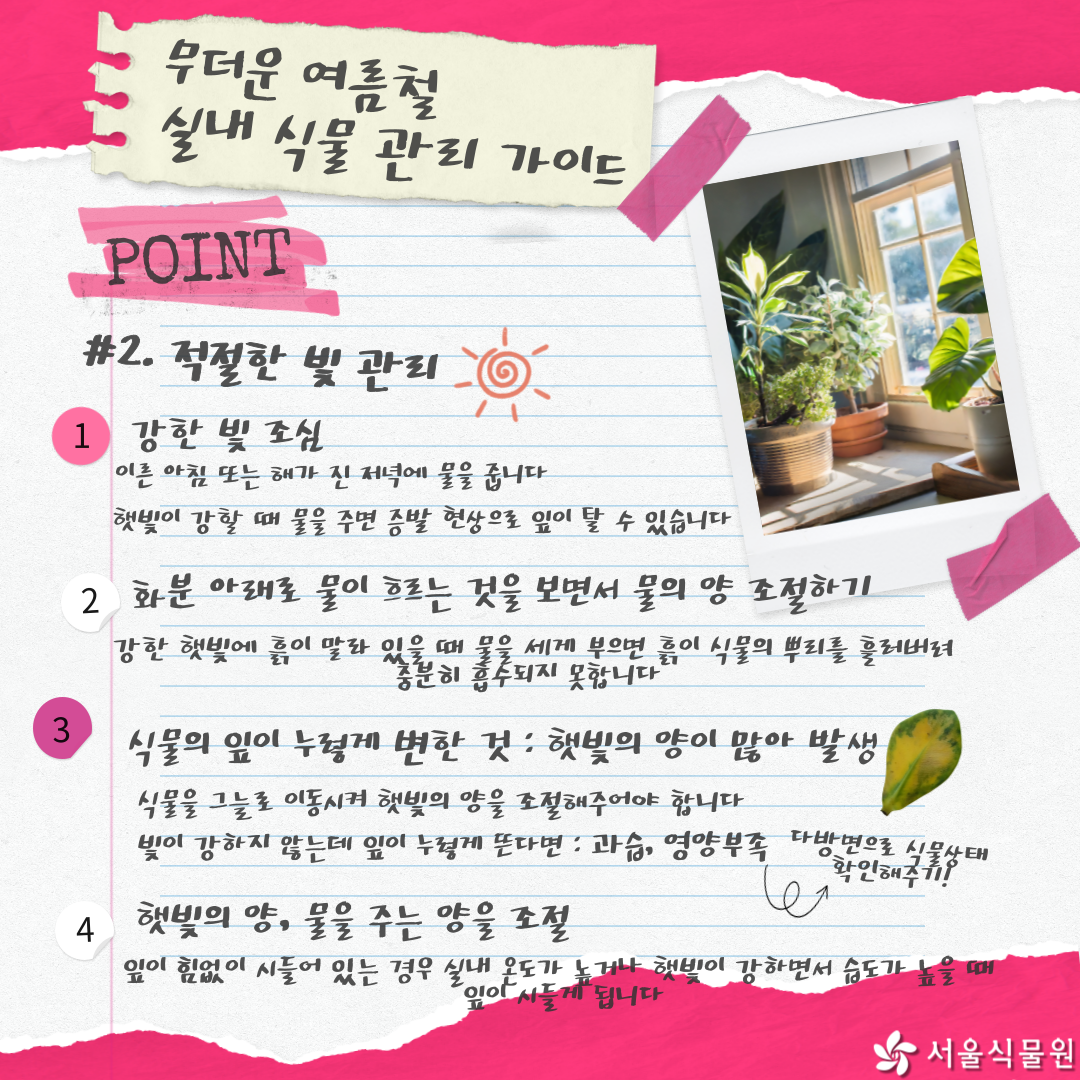 무더운 여름철
실내 식물 관리 가이드
POINT
#2. 적절한 빛 관리
1 강한 빛 조심
이른 아침 또는 해가 진 저녁에 물을 줍니다
햇빛이 강할 때 물을 주면 증발 현상으로 잎이 탈 수 있습니다
2 화분 아래로 물이 흐르는 것을 보면서 물의 양 조절하기
강한 햇빛에 흙이 말라 있을 때 물을 세게 부으면 흙이 식물의 뿌리를 흘러버려
충분히 흡수되지 못합니다
3 식물의 잎이 누렇게 변한 것 : 햇빛의 양이 많아 발생
식물을 그늘로 이동시켜 햇빛의 양을 조절해주어야 합니다
빛이 강하지 않는데 잎이 누렇게 뜬다면 : 과습, 영양부족
다방면으로 식물상태
확인해주기!
4 햇빛의 양, 물을 주는 양을 조절
잎이 힘없이 시들어 있는 경우 실내 온도가 높거나 햇빛이 강하면서 습도가 높을 때
잎이 시들게 됩니다
서울식물원